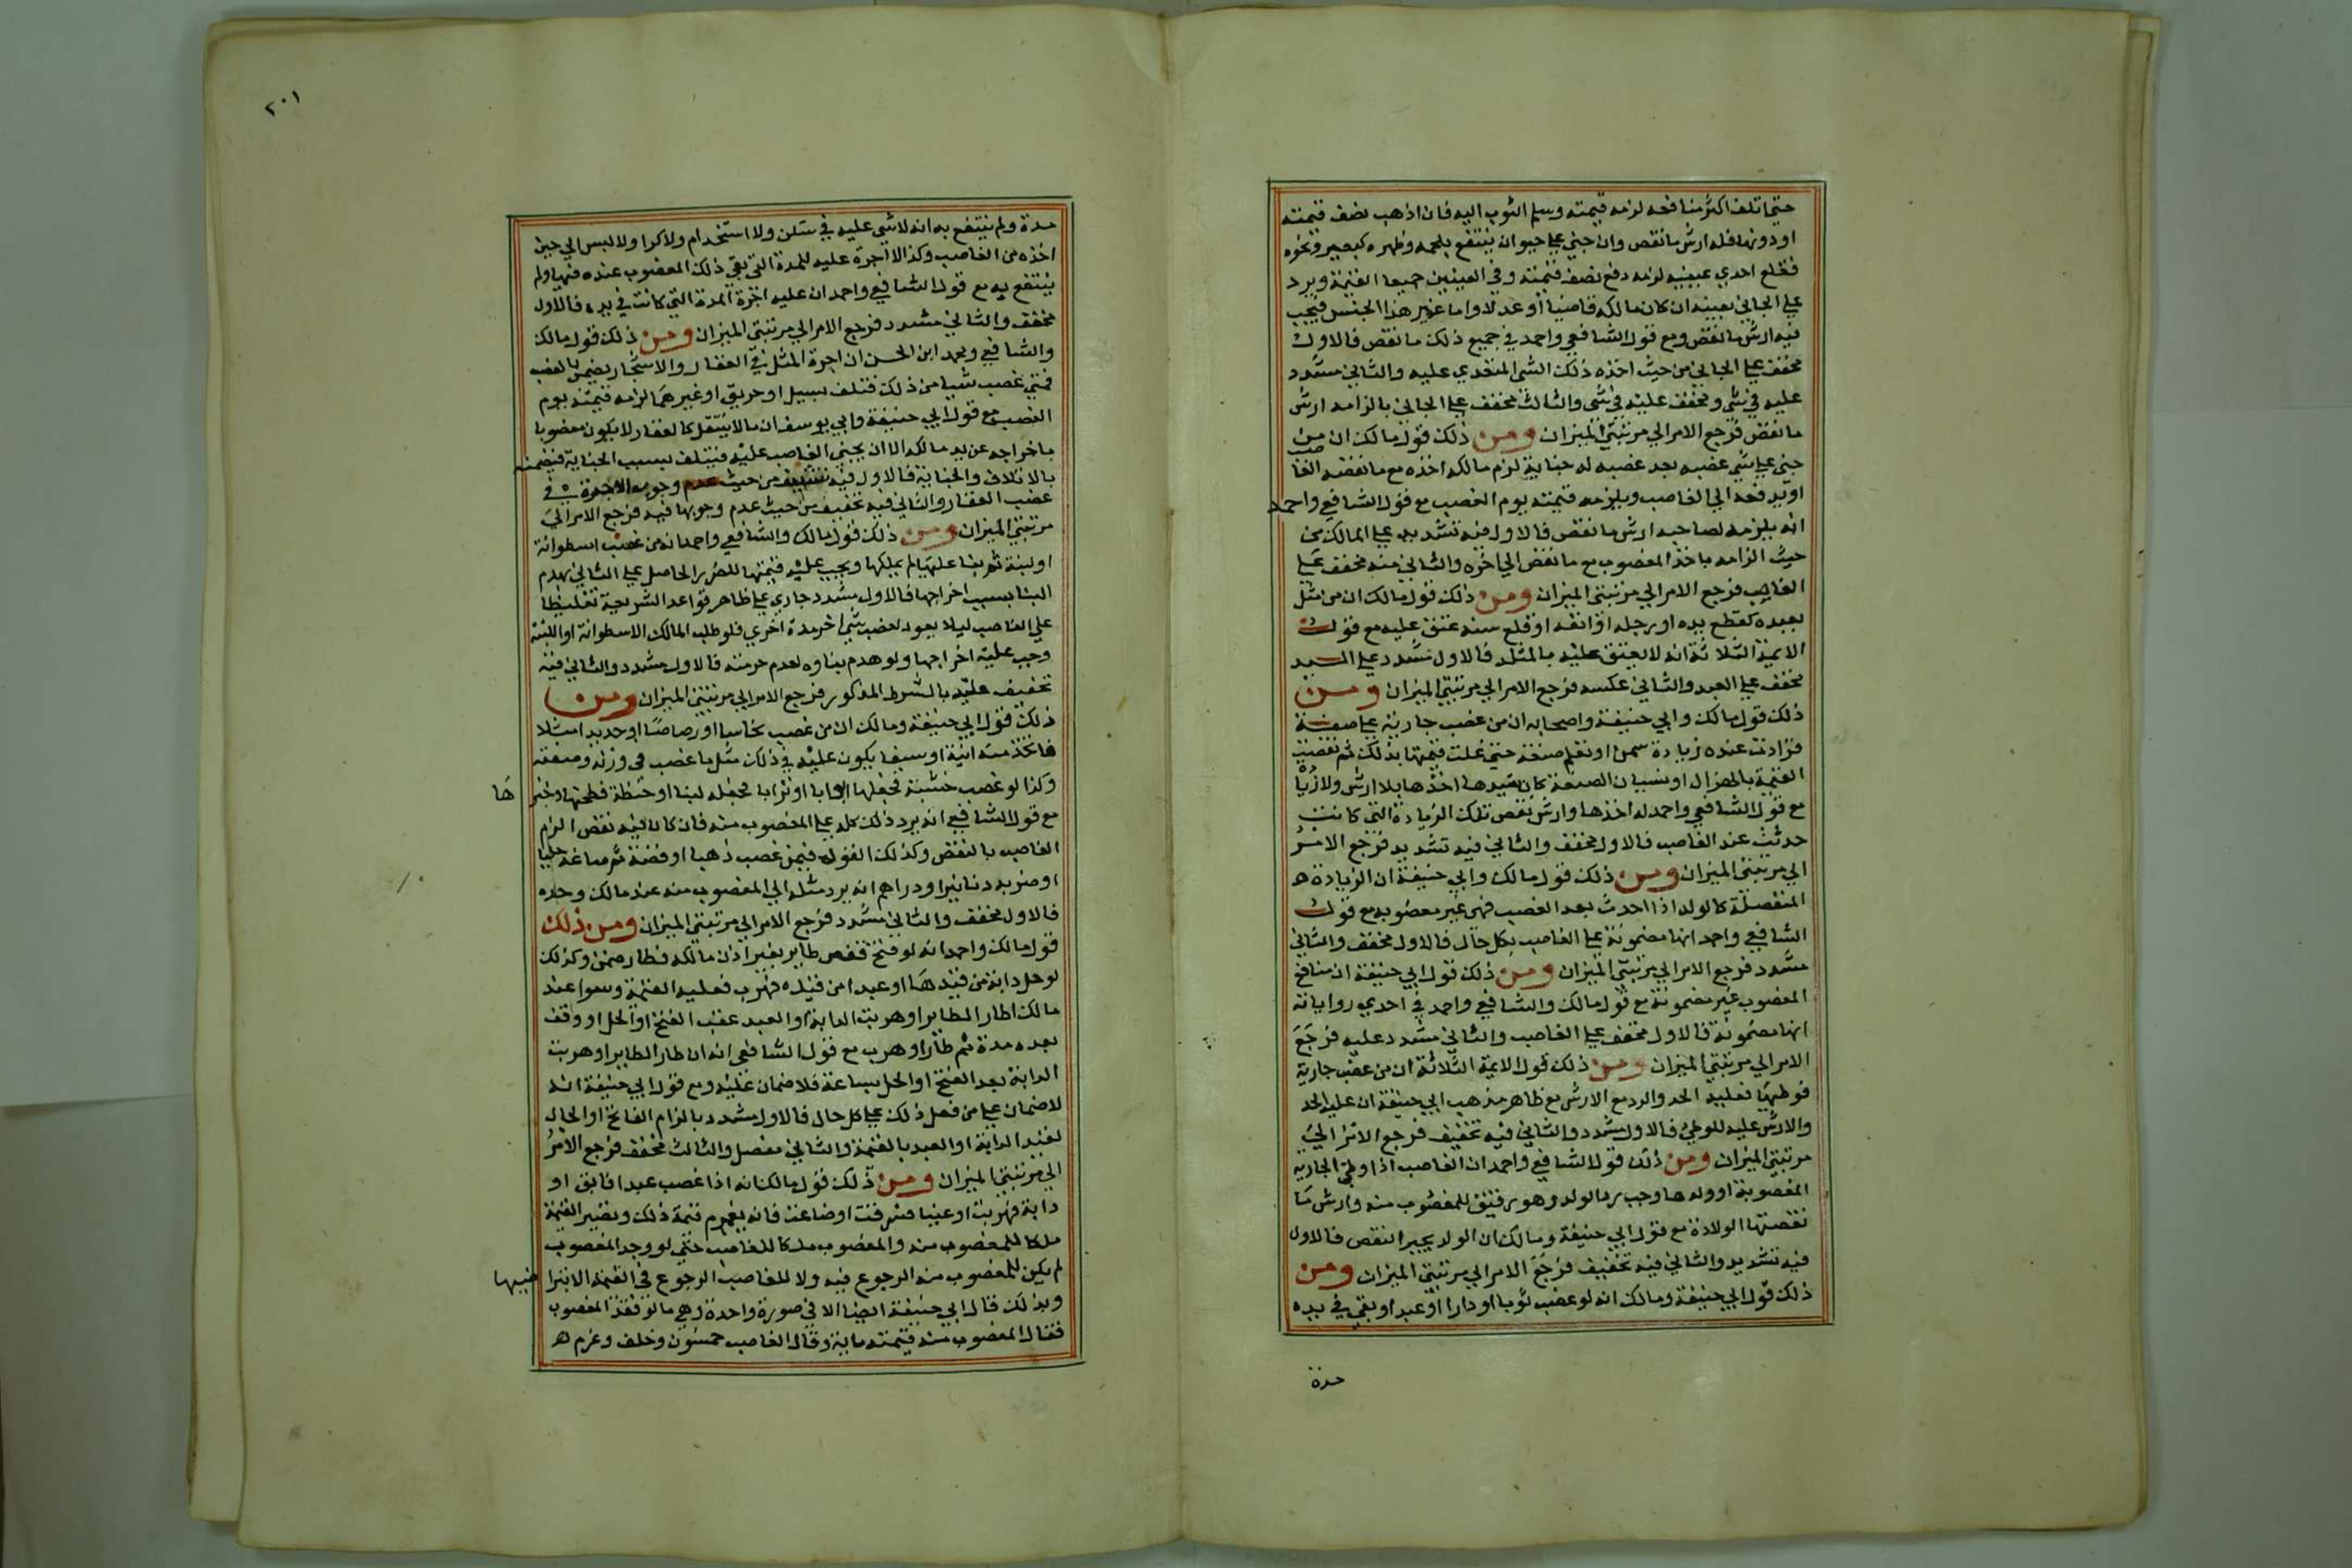 حتي اتلف اكثر منافعه لزمه قيمته وسلم الثوب اليه فان اذهب نصف قيمته
او دونها فله ارش ما نقص وان جني علي حيوان ينتفع بلحمه وظهره كبعير ونحوه
فقلع احدي عينيه لزمه دفع نصف قيمته وفي العينين جميعا القيمة ويرد
علي الجاني بعينه ان كان مالكه قاضيا او عدلا واما غير هذا الجنس فيجب
فيه ارش ما نقص ومع قول الشافعي واحمد في جميع ذلك ما نقص فالاول
مخفف علي الجاني من حيث اخذه ذلك الشي المتعدي عليه والثاني مشدد
عليه في شي ومخفف عليه في شي والثالث مخفف علي الجاني بالزامه ارش
ما نقص فرجع الامر الي مرتبتي الميزان ومن ذلك قول مالك ان من
جني علي شي غصبه بعد غصبه له جناية لزم مالكه اخذه مع ما نقصه الغاصب
او يدفعه الي الغاصب ويلزمه قيمته يوم الغصب مع قول الشافعي واحمد
انه يلزمه لصاحبه ارش ما نقص فالاول فيه تشديد علي المالك من
حيث الزامه باخذ المغصوب مع ما نقص الي اخره والثاني منه مخفف علي
الغاصب فرجع الامر الي مرتبتي الميزان ومن ذلك قول مالك ان من مثل
بعبده كقطع يده او رجله او انفه او قلع سنه عتق عليه مع قول
الائمة الثلاثة انه لا يعتق عليه بالمثلة فالاول مشدد علي السيد
مخفف علي العبد والثاني عكسه فرجع الامر الي مرتبتي الميزان ومن
ذلك قول مالك وابي حنيفة واصحابه ان من غصب جارية علي صفة
فزادت عنده زيادة سمن او تعلم صنعة حتي غلت قيمتها بذلك ثم نقصت
القيمة بالهزال او نسيان الصنعة كان سيدها اخذها بلا ارش ولا زيا
مع قول الشافعي واحمد له اخذها وارش نقص تلك الزيادة التي كانت
حدثت عند الغاصب فالاول مخفف والثاني فيه تشديد فرجع الامر
الي مرتبتي الميزان ومن ذلك قول مالك وابي حنيفة ان الزيادة ه
المنفصلة كالولد اذا احدث بعد الغصب فهي غير مغصوبه مع قول
الشافعي واحمد انها مضمونة علي الغاصب بكل حال فالاول مخفف والثاني
مشدد فرجع الامر الي مرتبتي الميزان ومن ذلك قول ابي حنيفة ان منافع
المغصوب غير مضمونة مع قول مالك والشافعي واحمد في احدي رواياته
انها مضمونة فالاول مخفف علي الغاصب والثاني مشدد عليه فرجع
الامر الي مرتبتي الميزان ومن ذلك قول الايمة الثلاثة ان من غصب جارية
فوطيها فعليه الحد والرد مع الارش مع ظاهر مذهب ابي حنيفة ان عليه الحد
والارش عليه للوطي فالاول مشدد والثاني فيه تخفيف فرجع الامر الي
مرتبتي الميزان ومن ذلك قول الشافعي واحمد ان الغاصب اذا وطي الجارية
المغصوبة او ولدها وجب رد الولد وهو رقيق للمغصوب منه وارش ما
نقصتها الولادة مع قول ابي حنيفة ومالك ان الولد يجبر النقص فالاول
فيه تشديد والثاني فيه تخفيف فرجع الامر الي مرتبتي الميزان ومن
ذلك قول ابي حنيفة ومالك انه لو غصب ثوبا او دارا او عبدا وبقي في يده
مدة
٢٠١
مدة ولم ينتفع به انه لا شي عليه في سكن ولا استخدام ولا كرا ولا لبس الي حين
اخذه من الغاصب وكذا لا اجرة عليه للمدة التي بقي ذلك المغصوب عنده فيها ولم
ينتفع به مع قول الشافعي واحمد ان عليه اجرة المدة التي كانت في يده فالاول
مخفف والثاني مشدد فرجع الامر الي مرتبتي الميزان ومن ذلك قول مالك
والشافعي ومحمد ابن الحسن ان اجرة المثل في العقار والاشجار يضمن بالغصب
فمتي غصب شيا من ذلك فتلف بسيل او حريق او غيرهما لزمه قيمته يوم
الغصب مع قول ابي حنيفة وابي يوسف ان ما لا ينتقل كالعقار لا يكون مغصوبا
باخراجه عن يد مالكه الا ان يجني الغاصب عليه فيتلف بسبب الجناية فيضمنه
بالاتلاف والجناية فالاول فيه من حيث وجوب الاجرة في
غصب العقار والثاني فيه تخفيف من حيث عدم وجوبها فيه فرجع الامر الي
مرتبتي الميزان ومن ذلك قول مالك والشافعي واحمد انه من غصب اسطوانة
او لبنة ثم بنا عليها لم يملكها ويجب عليه قيمتها للضرر الحاصل علي الثاني بهدم
البنا بسبب اخراجها فالاول مشدد جاري علي ظاهر قواعد الشريعة تغليظا
علي الغاصب ليلا يعود لغصب شي اخر مدة اخري فلو طلب المالك الاسطوانة او اللبنة
وجب عليه اخراجها ولو هدم بناوه لعدم حرمته فالاول مشدد والثاني فيه
تخفيف عليه بالشرط المذكور فرجع الامر الي مرتبتي الميزان ومن
ذلك قول ابي حنيفة ومالك ان من غصب نحاسا او رصاصا او حديدا مثلا
فاتخذ منه انية او سيفا يكون عليه في ذلك مثل ما غصب في وزنه وصفته
وكذا لو غصب خشبة فجعلها ابوابا او ترابا فجعله لبنا او حنطة فطحنها وخبزها
مع قول الشافعي انه يرد ذلك كله علي المغصوب منه فان كان فيه نقص الزم
الغاصب بالنقص وكذلك القول فيمن غصب ذهبا او فضة ثم صاغه حليا
او ضربه دنانيرا ودراهم انه يرد مثله الي المغصوب منه عند مالك وحده
فالاول مخفف والثاني مشدد فرجع الامر الي مرتبتي الميزان ومن ذلك
قول مالك واحمد انه لو فتح قفص طاير بغير اذن مالكه فطار ضمن وكذلك
لو حل دابة من قيدها او عبدا من قيده فهرب فعليه القيمة وسوا عند
مالك اطار الطاير او هربت الدابة او العبد عقب الفتح او الحل او وقف
بعده مدة ثم طار او هرب مع قول الشافعي انه ان طار الطاير او هربت
الدابة بعد الفتح او الحل بساعة فلا ضمان عليه ومع قول ابي حنيفة انه
لا ضمان علي من فعل ذلك علي كل حال فالاول مشدد بالزام الفاتح او الحال
لقيد الدابة او العبد بالقيمة والثاني مفصل والثالث مخفف فرجع الامر
الي مرتبتي الميزان ومن ذلك قول مالك انه اذا غصب عبدا فابق او
دابة فهربت او عينا فسرقت او ضاعت فانه يغرم قيمة ذلك وتصير القيمة
ملكا للمغصوب منه والمغصوب ملكا للغاصب حتي لو وجد المغصوب
لم يكن للمغصوب منه الرجوع فيه ولا للغاصب الرجوع في القيمة الا بتراضيهما
وبذلك قال ابي حنيفة ايضا الا في صورة واحدة وهي ما لو فقد المغصوب
فقال المغصوب منه قيمته ماية وقال الغاصب خمسون وحلف وغرم ه